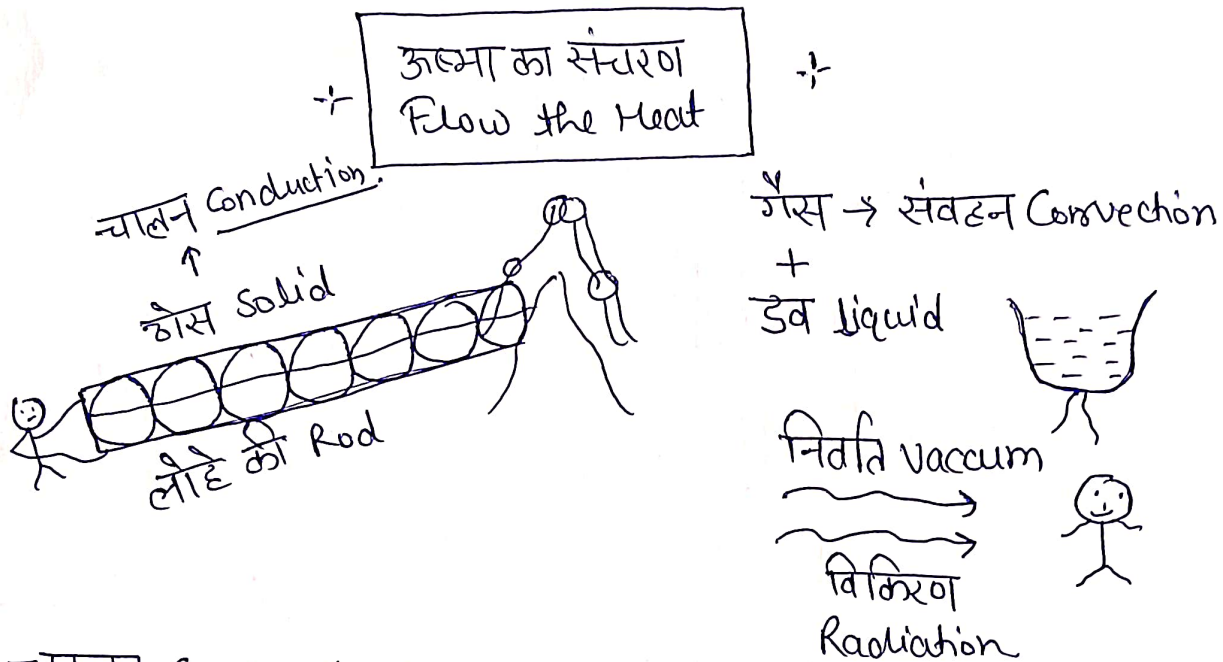 ऊष्मा का संचरण
Flow the Heat
चालन Conduction.
ठोस Solid
लोहे की Rod
गैस → संवहन Convection
+
द्रव liquid
निर्वात vaccum
विकिरण
Radiation